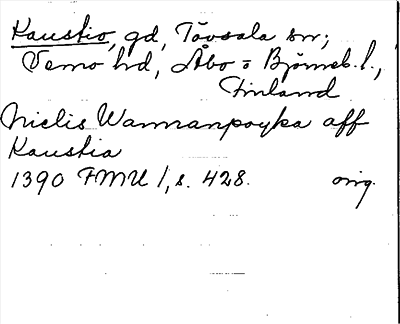 Kaustio, gd, Tövsala sn;
Vemo hd, Åbo o Björneb. l.,
Finland
Nielis Wannanpoyka aff
Kaustia
1390 FMU 1, s. 428. orig.